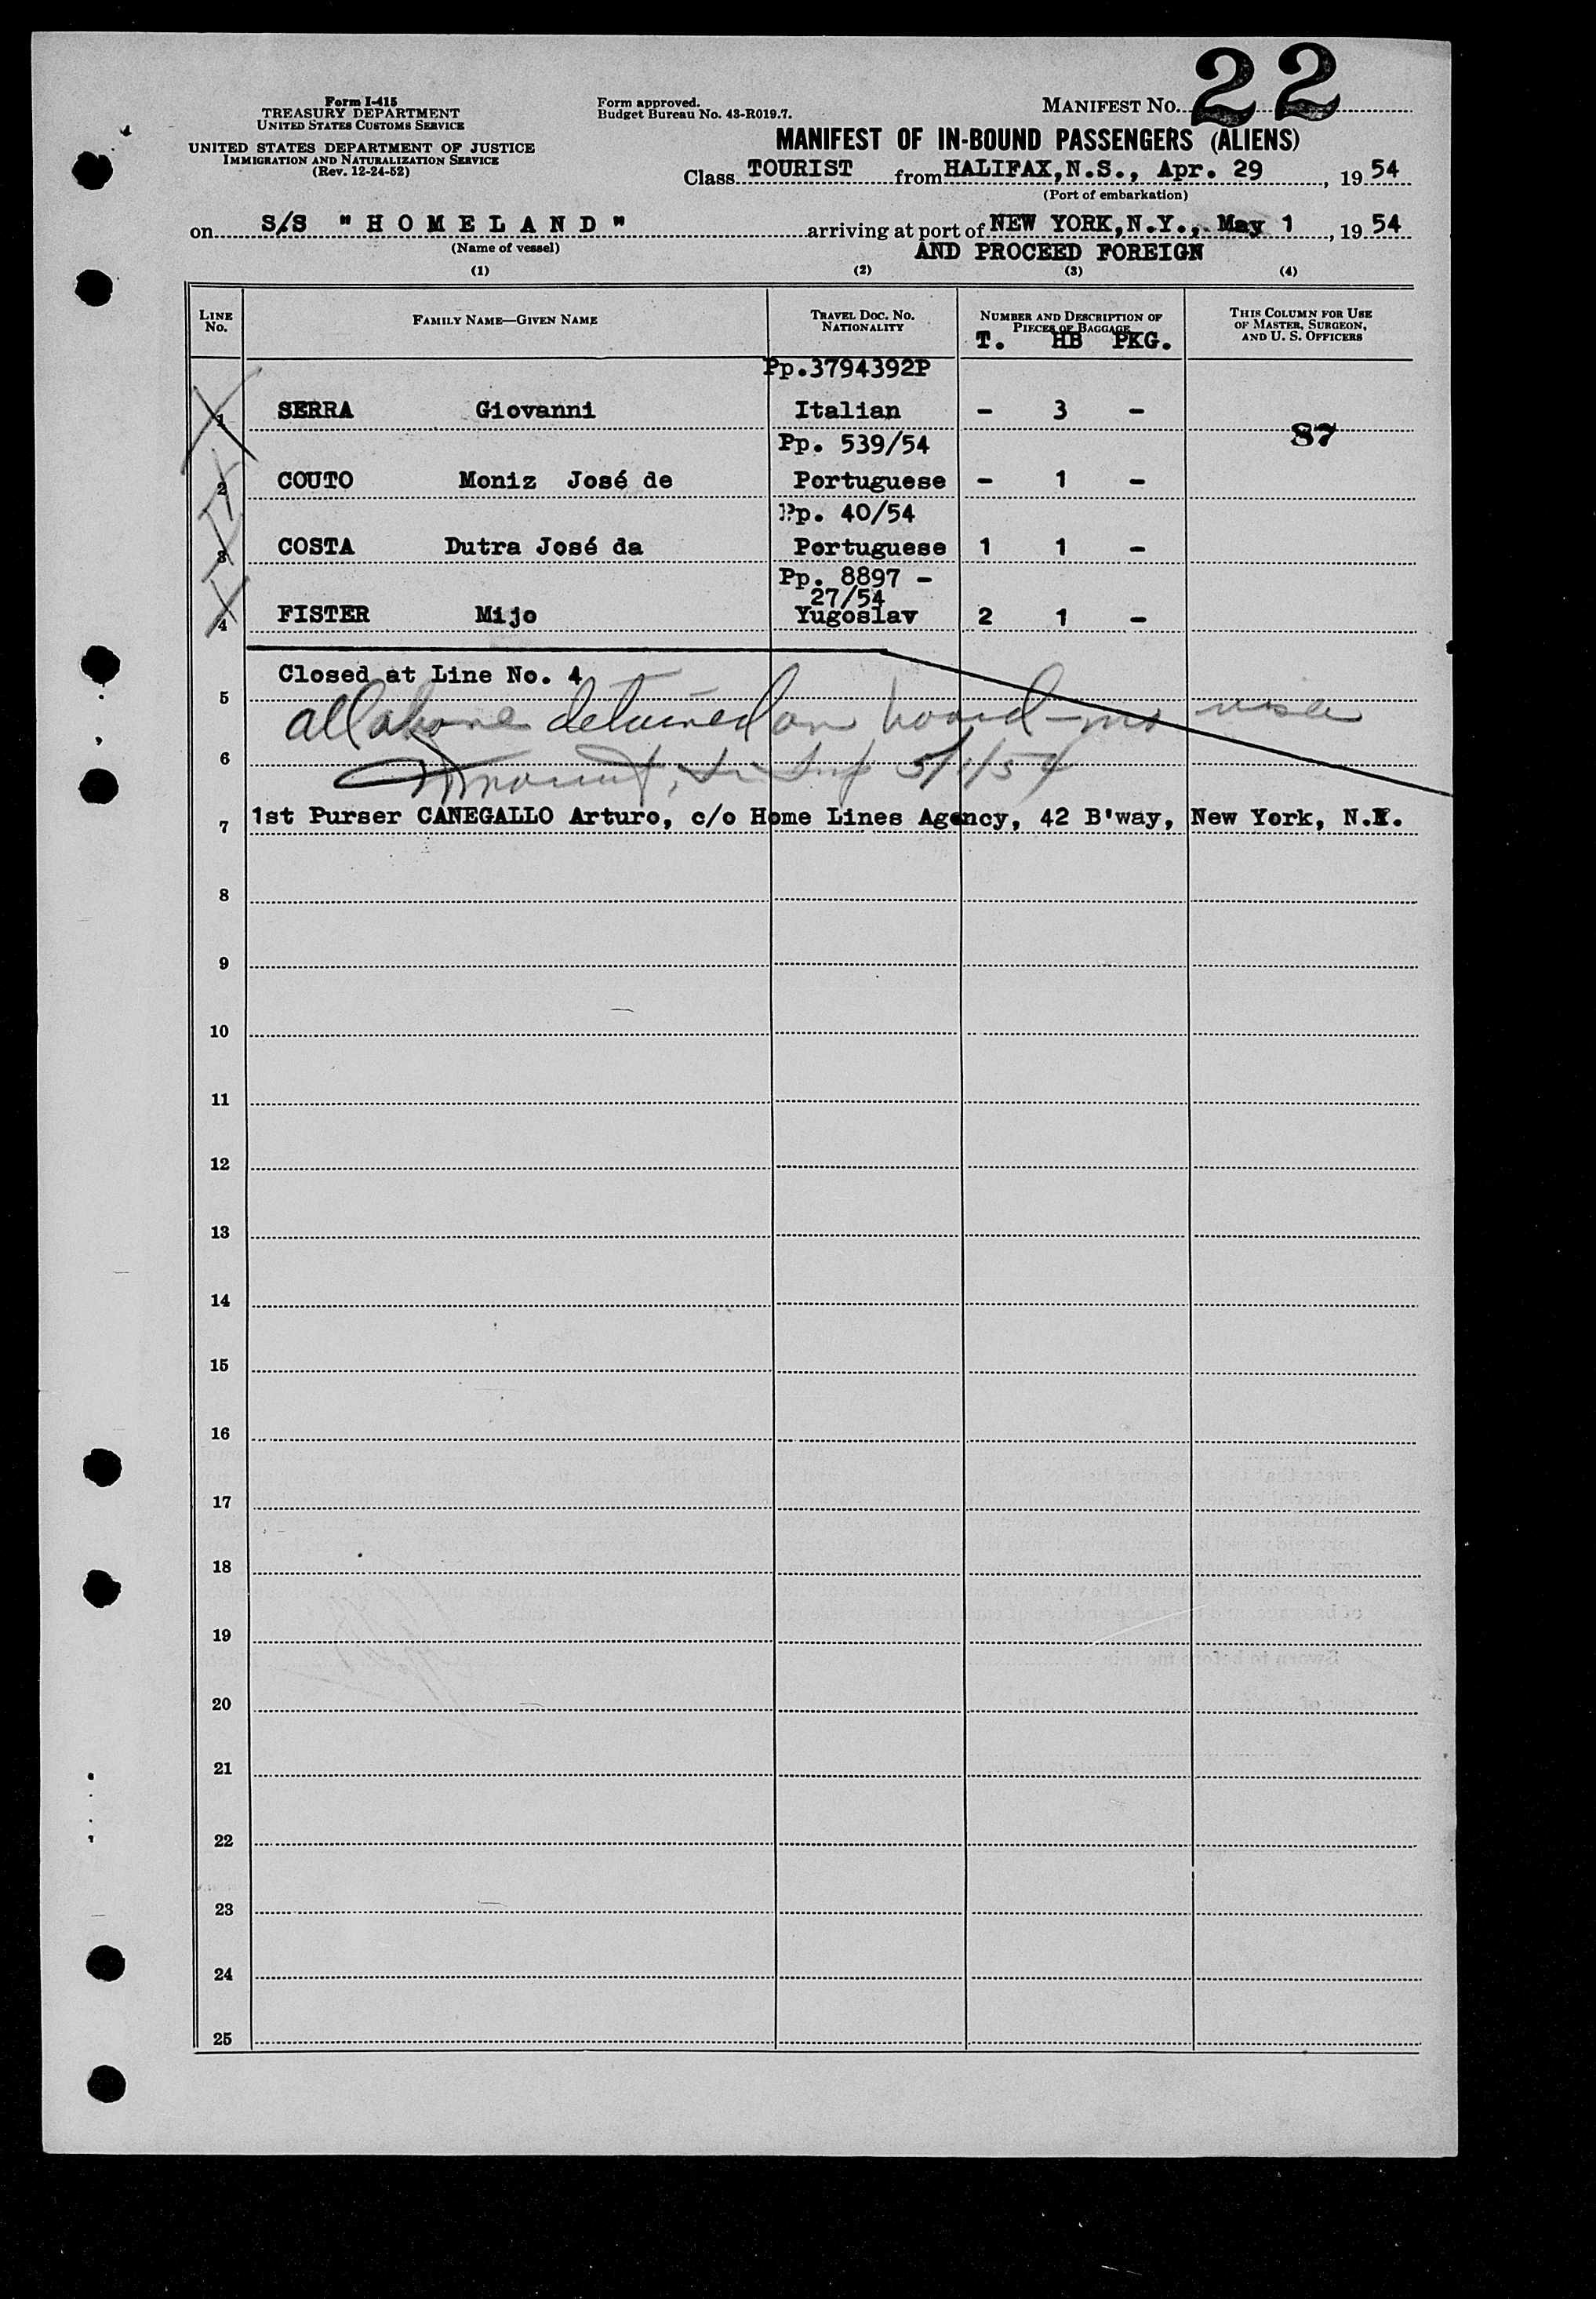 Form I-415
TREASURY DEPARTMENT
UNITED STATES CUSTOMS SERVICE
UNITED STATES DEPARTMENT OF JUSTICE
IMMIGRATION AND NATURALIZATION SERVICE
(Rev. 12-24-52)
Form approved.
Budget Bureau No. 43-R019.7.
MANIFEST NO. 22
MANIFEST OF IN-BOUND PASSENGERS (ALIENS)
Class TOURIST from HALIFAX,N.S., Apr. 29, 1954
(Port of embarkation)
on S/S "HOMELAND" arriving at port of NEW YORK,N.Y., May 1, 1954
(Name of vessel)
AND PROCEED FOREIGN
(1) (2) (3) (4)
LINE NO. FAMILY NAME—GIVEN NAME TRAVEL DOC. NO. NATIONALITY NUMBER AND DESCRIPTION OF PIECES OF BAGGAGE THIS COLUMN FOR USE OF MASTER, SURGEON, AND U. S. OFFICERS
T. HB PKG.
Pp.3794392P
1 SERRA Giovanni Italian - 3 -
87
Pp. 539/54
2 COUTO Moniz José de Portuguese - 1 -
Pp. 40/54
3 COSTA Dutra José da Portuguese 1 1 -
Pp. 8897 -
27/54
4 FISTER Mijo Yugoslav 2 1 -
Closed at Line No. 4
5
all above detained on board - no visa
6
5/1/54
7 1st Purser CANEGALLO Arturo, c/o Home Lines Agency, 42 B'way, New York, N.Y.
8
9
10
11
12
13
14
15
16
17
18
19
20
21
22
23
24
25